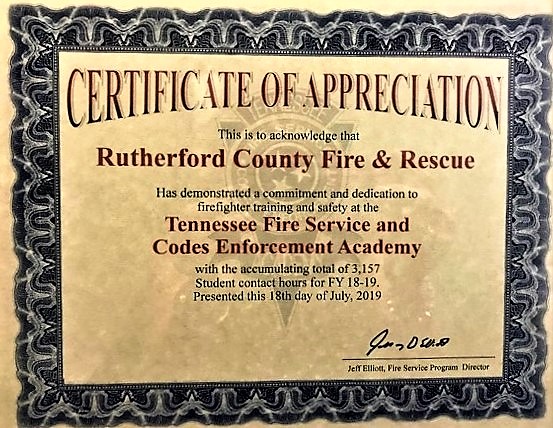 CERTIFICATE OF APPRECIATION
This is to acknowledge that
Rutherford County Fire & Rescue
Has demonstrated a commitment and dedication to
firefighter training and safety at the
Tennessee Fire Service and
Codes Enforcement Academy
with the accumulating total of 3,157
Student contact hours for FY 18-19.
Presented this 18th day of July, 2019
Jeff Elliott, Fire Service Program Director